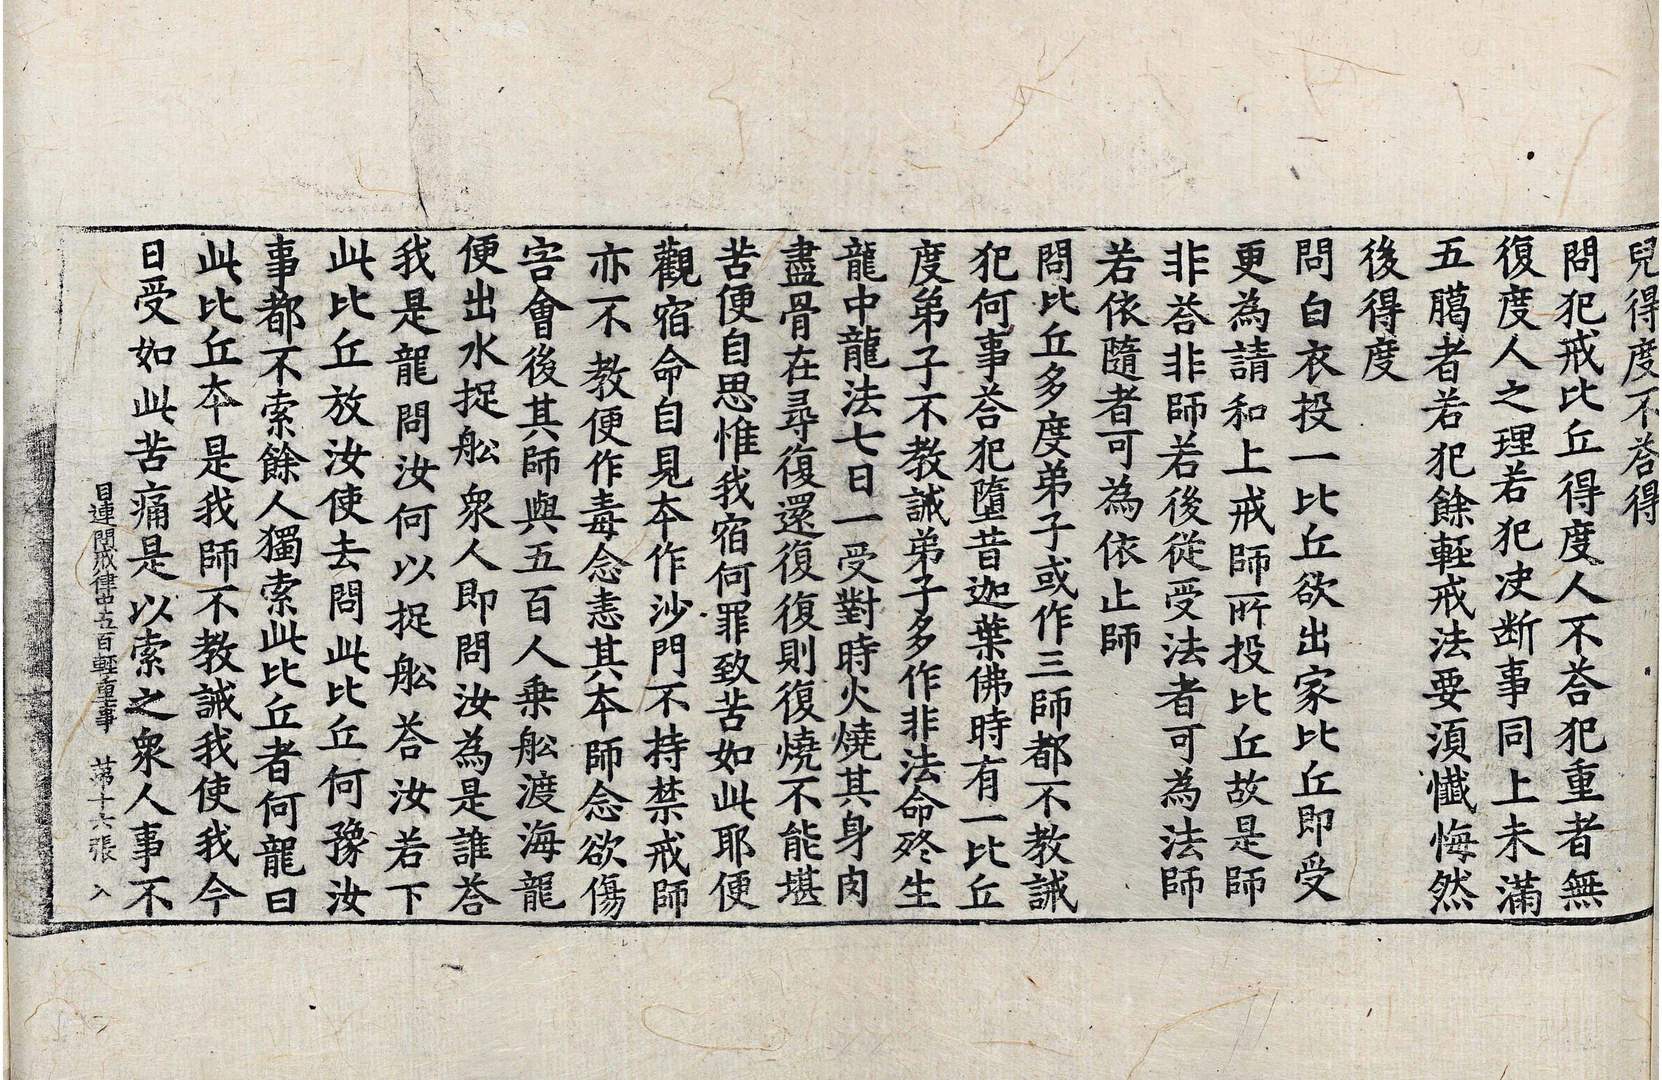 兒得度不荅得
問犯戒比丘得度人不荅犯重者無
復度人之理若犯决断事同上未滿
五臈者若犯餘輕戒法要湏懺悔然
後得度
問白衣投一比丘欲出家比丘即受
更為請和上戒師所投比丘故是師
非荅非師若後從受法者可為法師
若依隨者可為依止師
問比丘多度弟子或作三師都不教誡
犯何事荅犯墮昔迦葉佛時有一比丘
度弟子不教誡弟子多作非法命終生
龍中龍法七日一受對時火燒其身肉
盡骨在尋復還復復則復燒不能堪
苦便自思惟我宿何罪致苦如此耶便
觀宿命自見本作沙門不持禁戒師
亦不教便作毒念恚其本師念欲傷
害會後其師與五百人乗舩渡海龍
便出水捉舩衆人即問汝為是誰荅
我是龍問汝何以捉舩荅汝若下
此比丘放汝使去問此比丘何豫汝
事都不索餘人獨索此比丘者何龍曰
此比丘本是我師不教誡我使我今
日受如此苦痛是以索之衆人事不
目連問戒律中五百輕重事 苐十六張 入